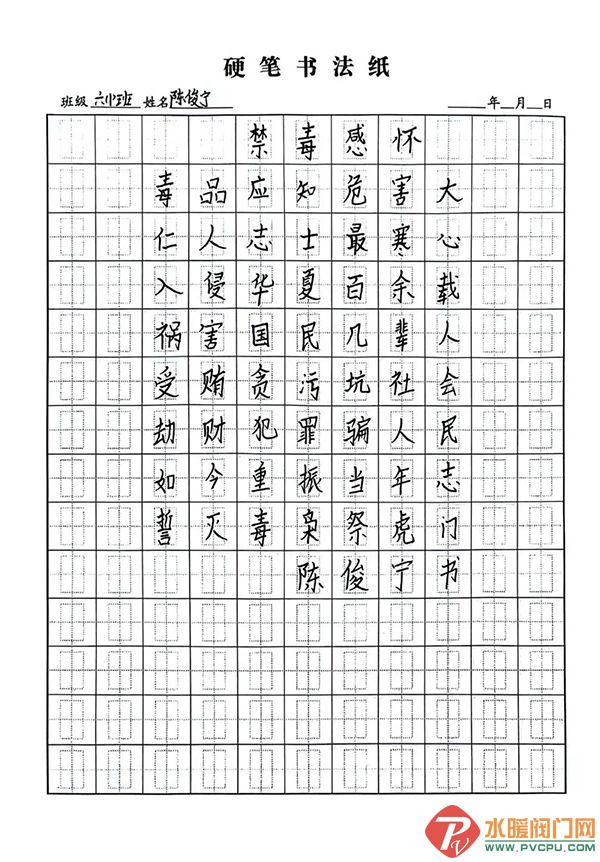 硬笔书法纸
班级 六(1)班 姓名 陈俊宁 年 月 日
禁毒感怀
毒品应知危害大
仁人志士最寒心
入侵华夏百余载
祸害国民几辈人
受贿贪污坑社会
劫财犯罪骗人民
如今重振当年志
誓灭毒枭祭虎门
陈俊宁书
水暖阀门网
WWW.PVCPU.COM